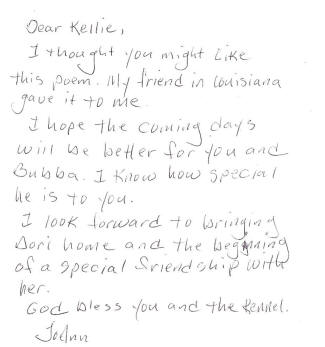 Dear Kellie,
I thought you might like
this poem. My friend in Louisiana
gave it to me.
I hope the coming days
will be better for you and
Bubba. I know how special
he is to you.
I look forward to bringing
Dori home and the beginning
of a special friendship with
her.
God bless you and the kennel.
JoAnn